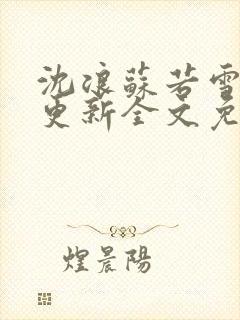 沈浪蘇若雪
更新全文免
煌晨陽